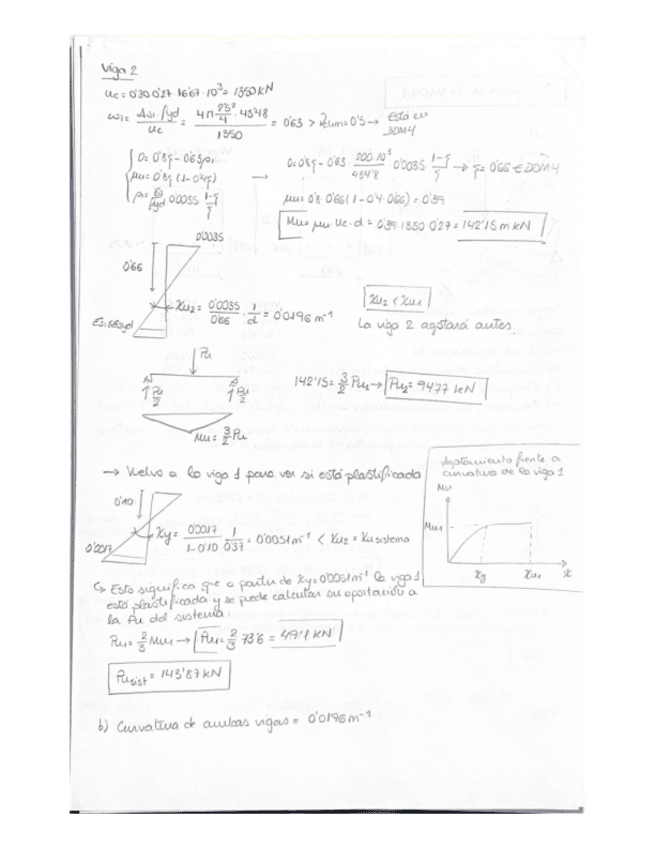 Viga 2
Uc = 0'30·0'27·16'67·10³ = 1350 kN
ω₁ = As₁·fyd / Uc = 4π 2'5²/4 · 43'48 / 1350 = 0'63 > ξlim = 0'5 → Está en DOM4
0 = 0'8ξ - 0'63ρ₁
μu = 0'8ξ(1-0'4ξ) →
ρ₁ = Es/fyd 0'0035 1-ξ/ξ
0 = 0'8ξ - 0'63 · 200·10³/434'8 · 0'0035 · 1-ξ/ξ → ξ = 0'66 ∈ DOM4
μu = 0'8·0'66(1-0'4·0'66) = 0'39
Mu = μu·Uc·d = 0'39·1350·0'27 = 142'15 m kN
0'0035
0'66
χu2 = 0'0035/0'66 · 1/d = 0'0196 m⁻¹
χu2 < χu1
La viga 2 agotará antes
Pu
Pu/2
Pu/2
Mu = 3/2 Pu
142'15 = 3/2 Pu₂ → Pu₂ = 94'77 kN
→ Vuelvo a la viga 1 para ver si está plastificada
0'10
0'0017
χy = 0'0017/1-0'10 · 1/0'37 = 0'0051 m⁻¹ < χu2 = χu sistema
Agotamiento frente a
curvatura de la viga 1
Mu
Mu1
χy
χu1
χ
↪ Esto significa que a partir de χy = 0'0051 m⁻¹ la viga 1
está plastificada y se puede calcular su aportación a
la Pu del sistema
Pu₁ = 2/3 Mu₁ → Pu₁ = 2/3 73'6 = 49'1 kN
Pu sist = 143'87 kN
b) Curvatura de ambas vigas = 0'0196 m⁻¹